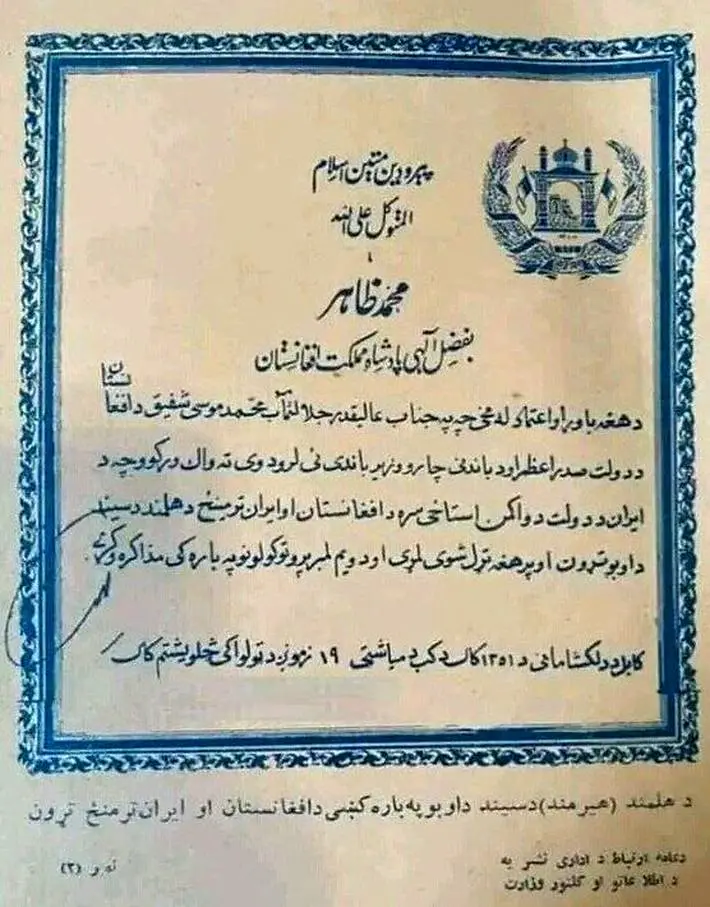 پیرو دین متین اسلام
المتوکل علی الله
محمد ظاهر
بفضل الهی پادشاه مملکت افغانستان
د هغه باور او اعتماد له مخی چه په جناب عالیقدر جلالتمآب محمد موسی شفیق د افغانستان
د دولت صدراعظم او د باندنی چارو وزیر باندی ئی لرو دوی ته واک ورکوو چه د
ایران د دولت د واکمن استاځی سره د افغانستان او ایران ترمینځ د هلمند د سیند
د اوبو تړون او پر هغه تړل شوی لمړی او دویم لمبر پروتوکولونو په باره کی مذاکره وکړی.
کابل د دلکشا مانی د ۱۳۵۱ کال د کب د میاشتی ۱۹ زمونږ د ټولواکی څلویښتم کال
د هلمند (هیرمند) د سیند د اوبو په باره کښی د افغانستان او ایران ترمنځ تړون
د عامه ارتباط د اداری نشریه
د اطلاعاتو او کلتور وزارت
(۳)